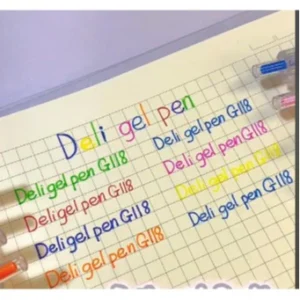 Deli gel pen
Deli gel pen G118
Deli gel pen G118
Deli gel pen G118
Deli gel pen G118
Deli gel pen G118
Deli gel pen G118
Deli gel pen G118
Deli gel pen G118